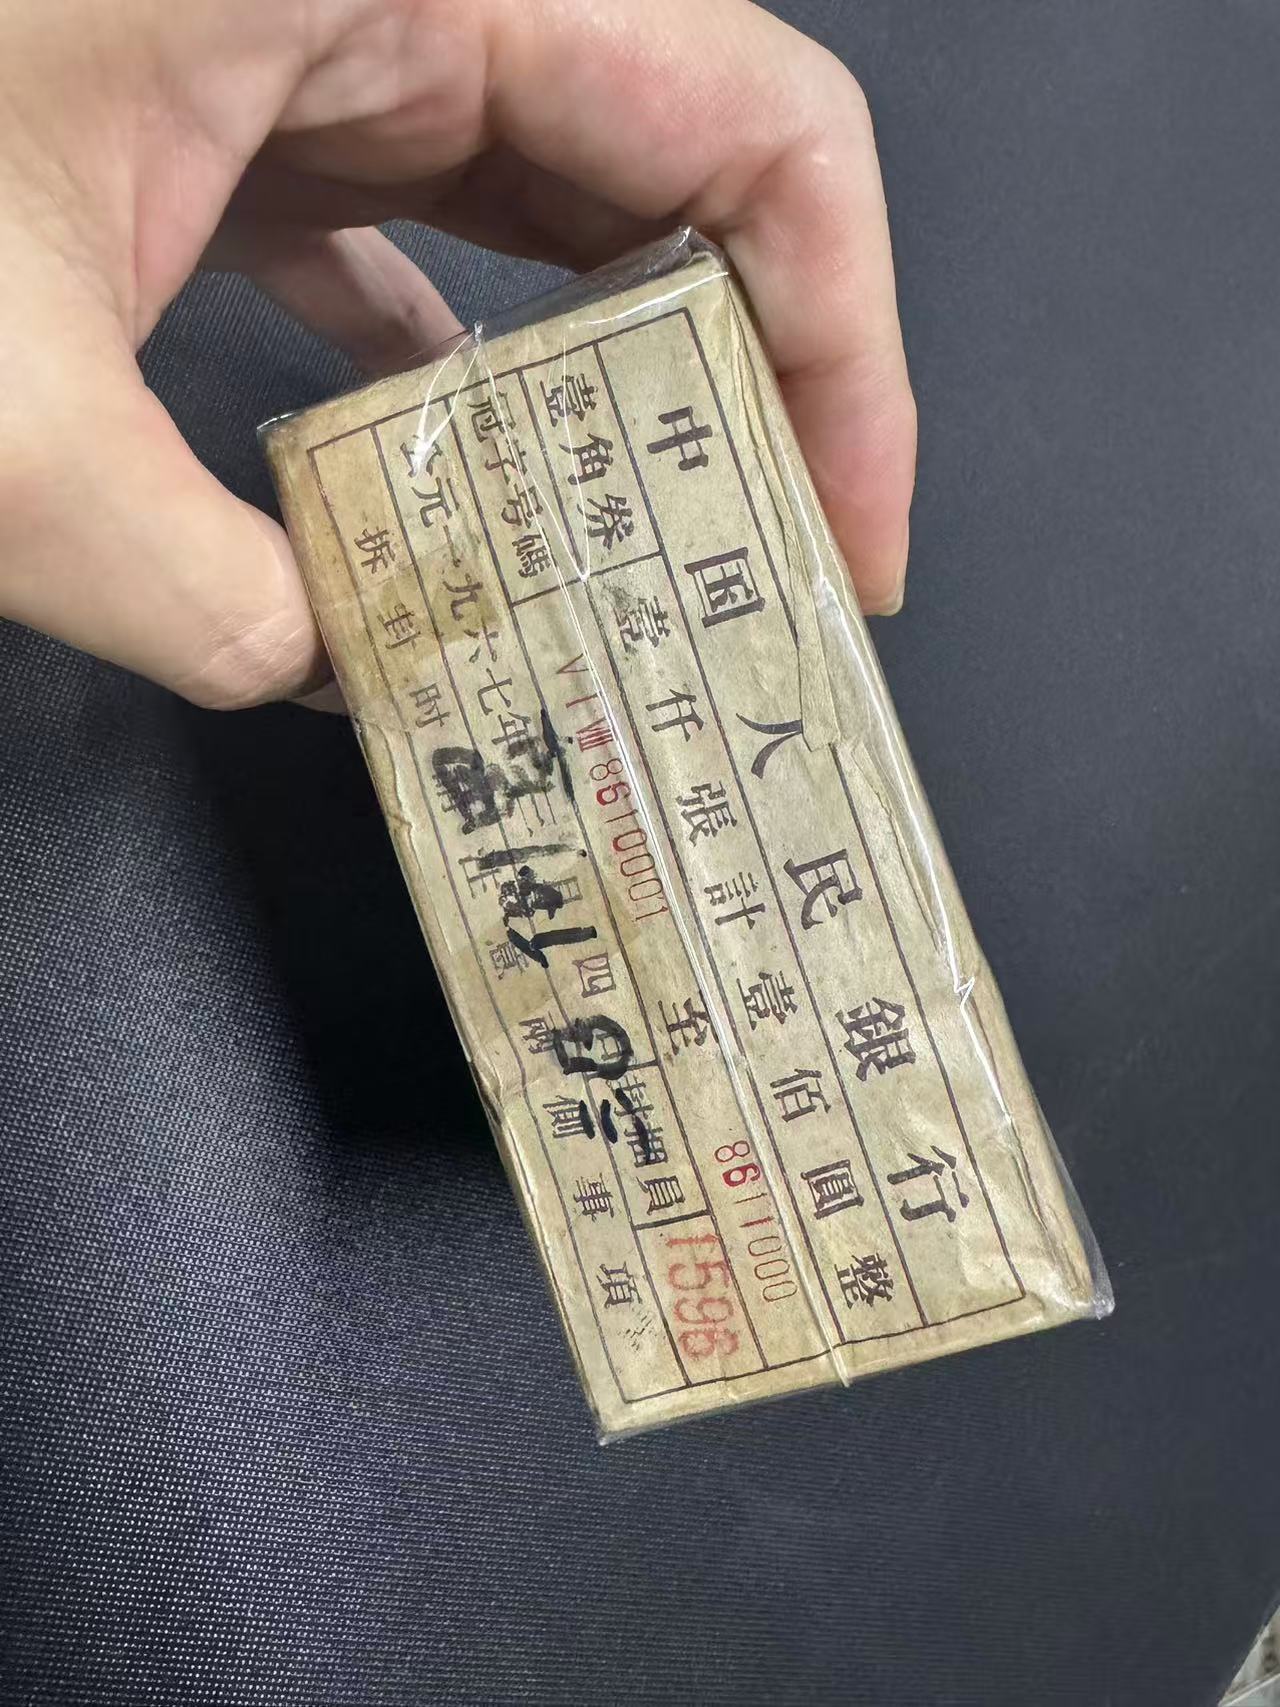 中国人民銀行
壹角券 壹仟張計壹佰圓整
冠字号碼 VIⅧ8610001 至 8611000
公元一九六七年三月四日 封捆員 1596
拆封时請注意兩側事項